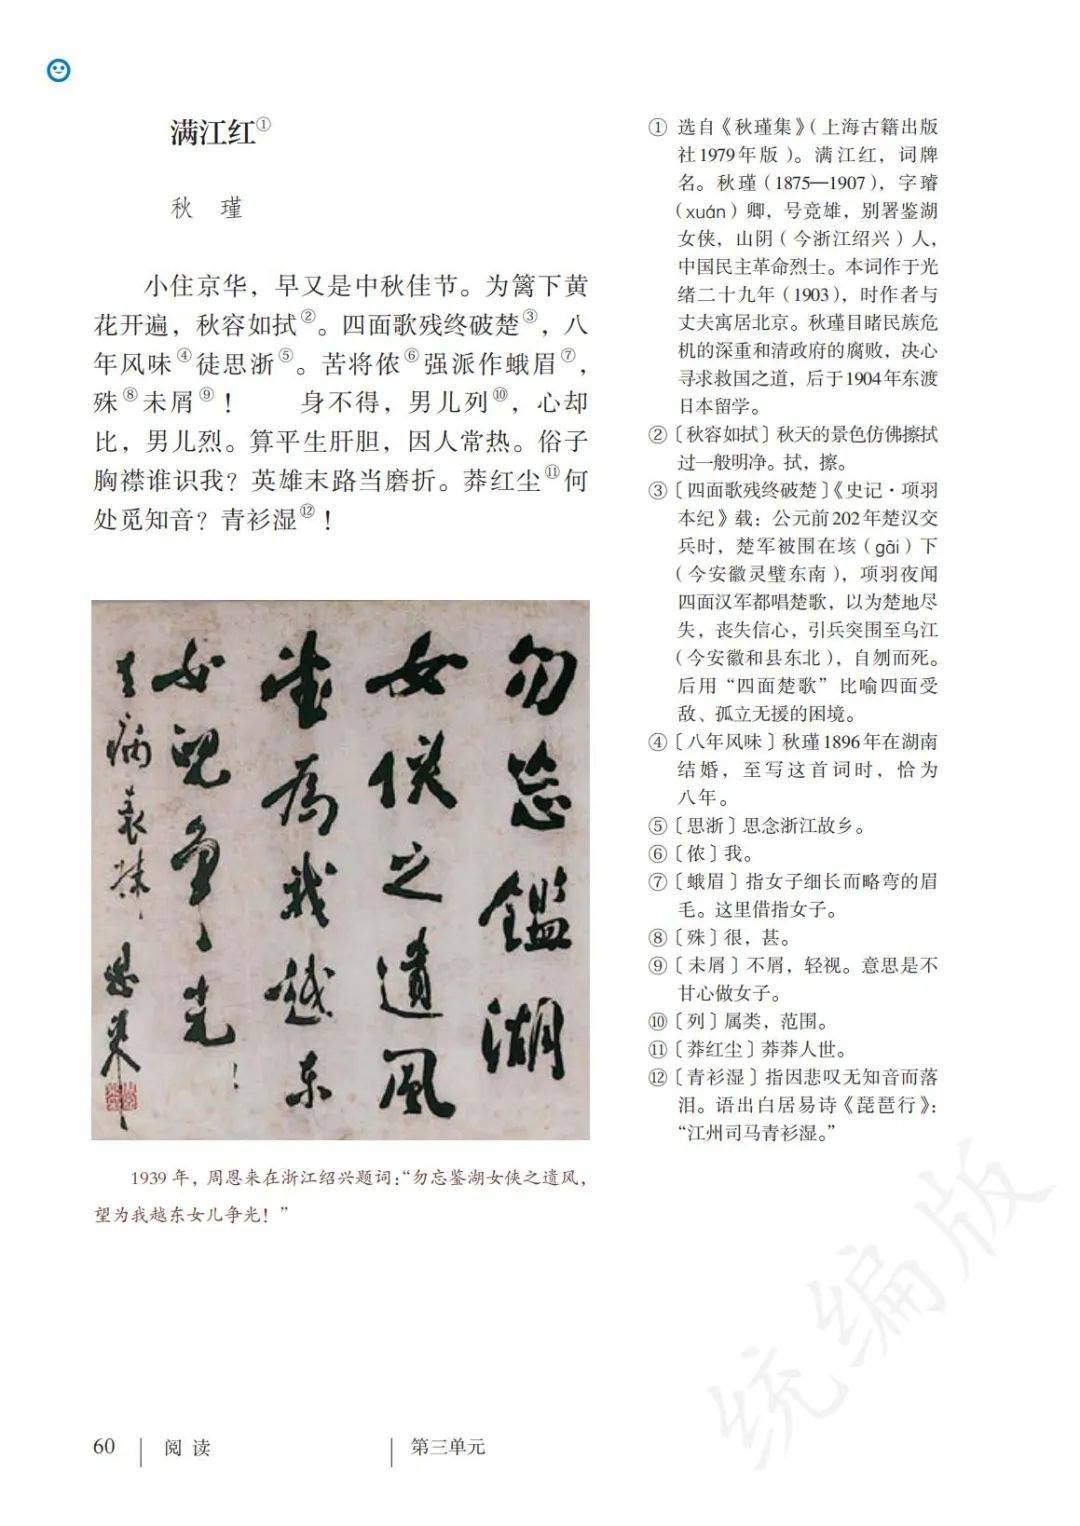 满江红①
秋 瑾
小住京华，早又是中秋佳节。为篱下黄
花开遍，秋容如拭②。四面歌残终破楚③，八
年风味④徒思浙⑤。苦将侬⑥强派作蛾眉⑦，
殊⑧未屑⑨！　　身不得，男儿列⑩，心却
比，男儿烈。算平生肝胆，因人常热。俗子
胸襟谁识我？英雄末路当磨折。莽红尘⑪何
处觅知音？青衫湿⑫！
勿忘鑑湖
女侠之遺風
望為我越東
女兒争光！
1939 年，周恩来在浙江绍兴题词：“勿忘鉴湖女侠之遗风，
望为我越东女儿争光！”
① 选自《秋瑾集》（上海古籍出版
社1979年版）。满江红，词牌
名。秋瑾（1875—1907），字璿
（xuán）卿，号竞雄，别署鉴湖
女侠，山阴（今浙江绍兴）人，
中国民主革命烈士。本词作于光
绪二十九年（1903），时作者与
丈夫寓居北京。秋瑾目睹民族危
机的深重和清政府的腐败，决心
寻求救国之道，后于1904年东渡
日本留学。
②〔秋容如拭〕秋天的景色仿佛擦拭
过一般明净。拭，擦。
③〔四面歌残终破楚〕《史记·项羽
本纪》载：公元前202年楚汉交
兵时，楚军被围在垓（gāi）下
（今安徽灵璧东南），项羽夜闻
四面汉军都唱楚歌，以为楚地尽
失，丧失信心，引兵突围至乌江
（今安徽和县东北），自刎而死。
后用“四面楚歌”比喻四面受
敌、孤立无援的困境。
④〔八年风味〕秋瑾1896年在湖南
结婚，至写这首词时，恰为
八年。
⑤〔思浙〕思念浙江故乡。
⑥〔侬〕我。
⑦〔蛾眉〕指女子细长而略弯的眉
毛。这里借指女子。
⑧〔殊〕很，甚。
⑨〔未屑〕不屑，轻视。意思是不
甘心做女子。
⑩〔列〕属类，范围。
⑪〔莽红尘〕莽莽人世。
⑫〔青衫湿〕指因悲叹无知音而落
泪。语出白居易诗《琵琶行》：
“江州司马青衫湿。”
统编版
60 阅 读 第三单元